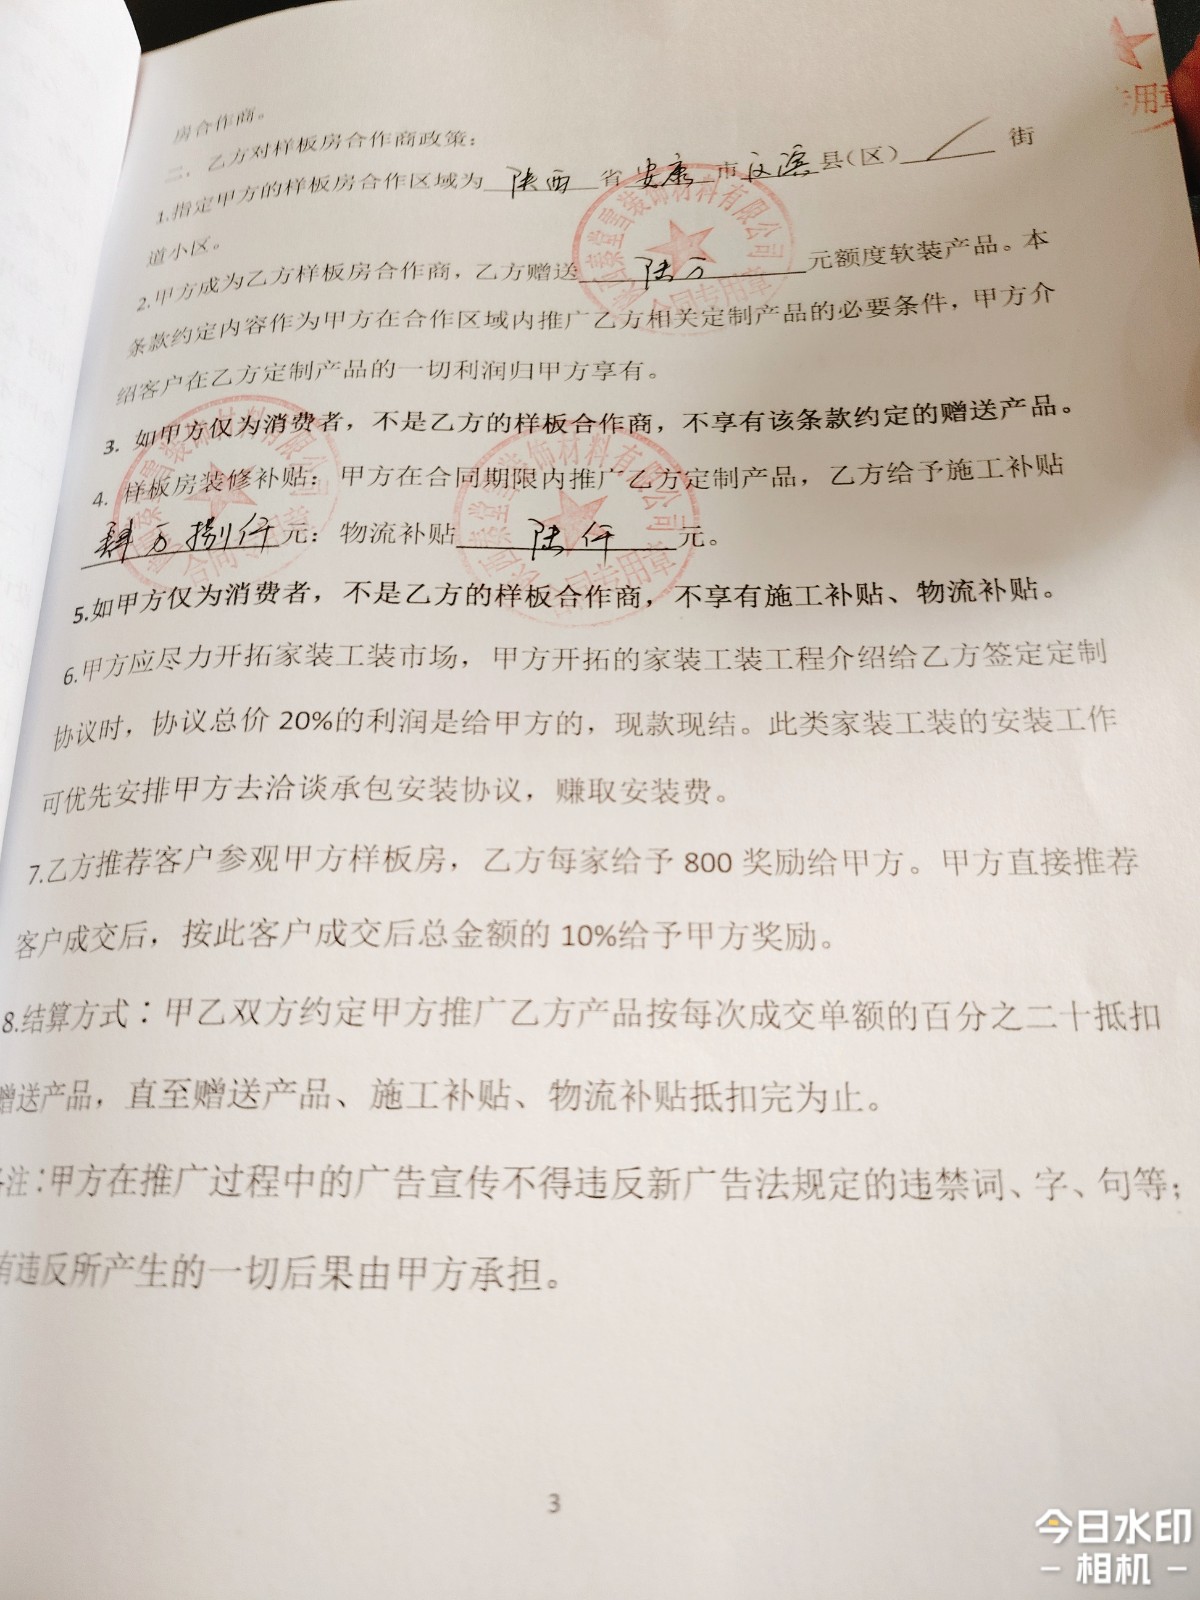 房合作商。
二、乙方对样板房合作商政策：
1.指定甲方的样板房合作区域为 陕西 省 安康 市 汉滨 县(区) / 街
道小区。
2.甲方成为乙方样板房合作商，乙方赠送 陆万 元额度软装产品。本
条款约定内容作为甲方在合作区域内推广乙方相关定制产品的必要条件，甲方介
绍客户在乙方定制产品的一切利润归甲方享有。
3. 如甲方仅为消费者，不是乙方的样板合作商，不享有该条款约定的赠送产品。
4. 样板房装修补贴：甲方在合同期限内推广乙方定制产品，乙方给予施工补贴
肆万捌仟元：物流补贴 陆仟 元。
5.如甲方仅为消费者，不是乙方的样板合作商，不享有施工补贴、物流补贴。
6.甲方应尽力开拓家装工装市场，甲方开拓的家装工装工程介绍给乙方签定定制
协议时，协议总价 20%的利润是给甲方的，现款现结。此类家装工装的安装工作
可优先安排甲方去洽谈承包安装协议，赚取安装费。
7.乙方推荐客户参观甲方样板房，乙方每家给予 800 奖励给甲方。甲方直接推荐
客户成交后，按此客户成交后总金额的 10%给予甲方奖励。
8.结算方式：甲乙双方约定甲方推广乙方产品按每次成交单额的百分之二十抵扣
赠送产品，直至赠送产品、施工补贴、物流补贴抵扣完为止。
注：甲方在推广过程中的广告宣传不得违反新广告法规定的违禁词、字、句等；
违反所产生的一切后果由甲方承担。
3
装饰材料有限公司
合同专用章
用章
今日水印
相机